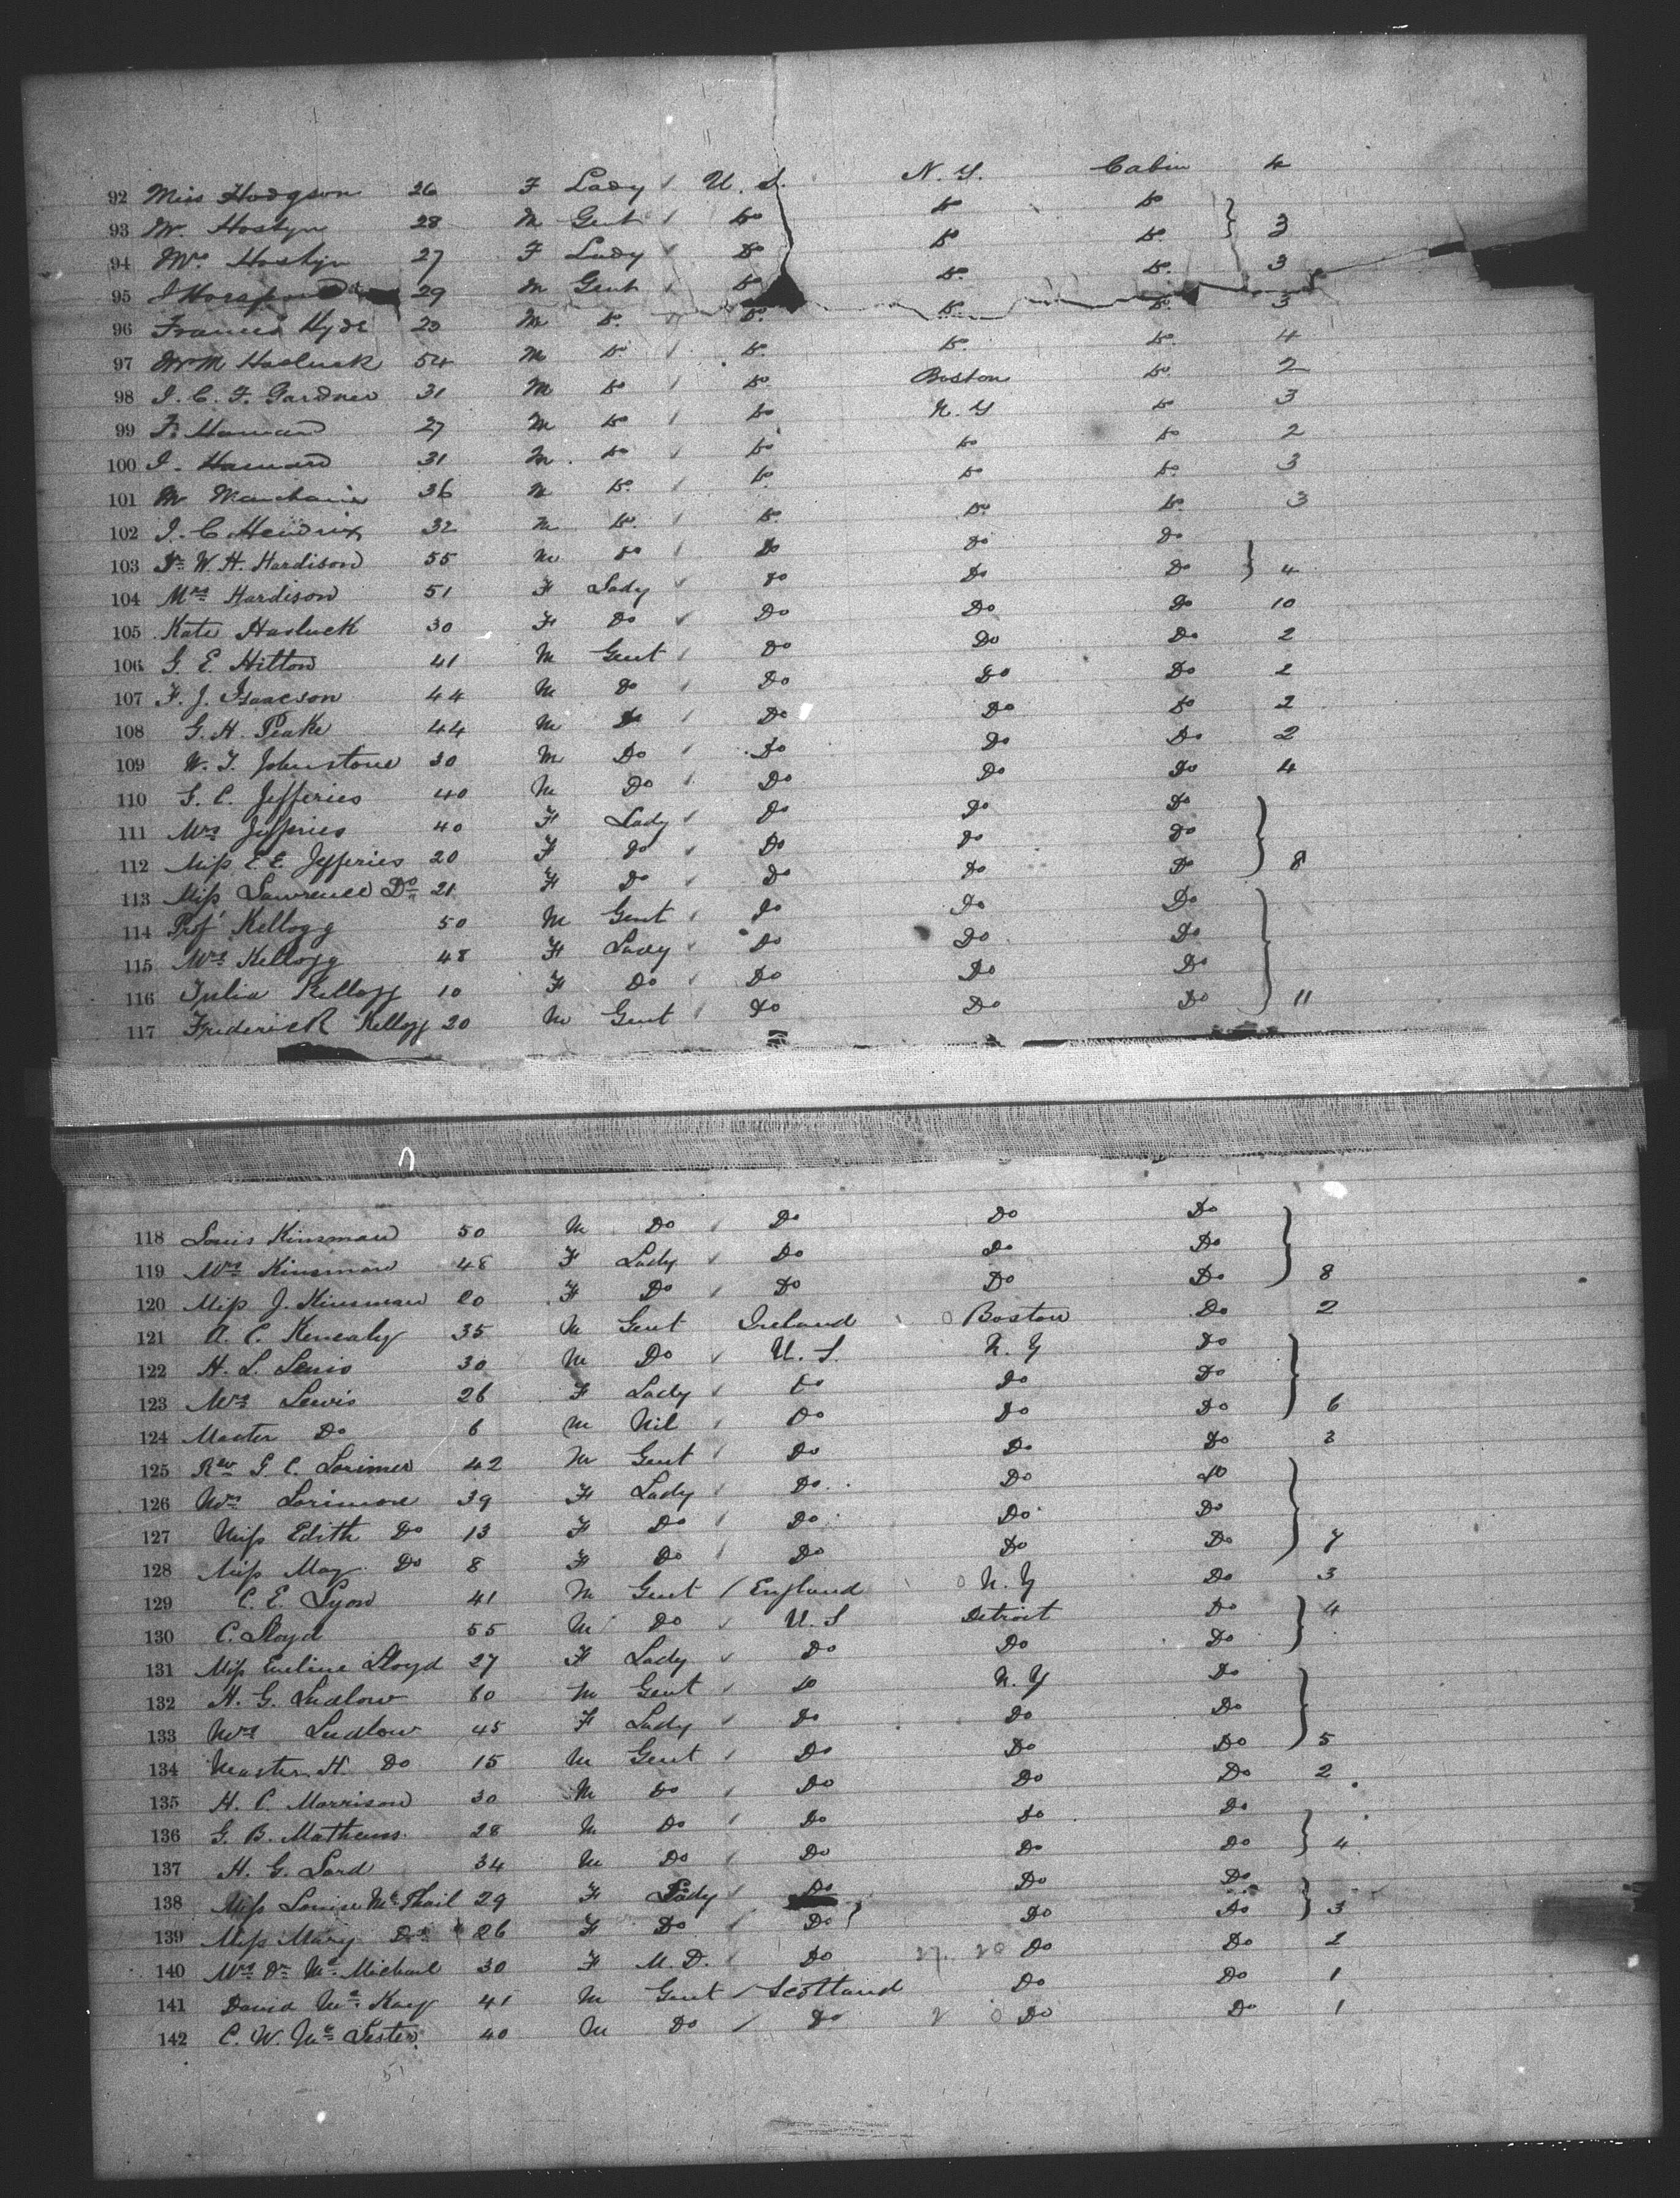 92 Miss Hodgson 26 F Lady U. S. N. Y. Cabin 4
93 Mr. Hostyn 28 M Gent Do Do Do
94 Mrs. Hostyn 27 F Lady Do Do Do 3
95 29 M Gent Do Do Do 3
96 Francis Hyde M Do Do Do Do 3
97 Wm Hasluck 54 M Do Do Do Do 4
98 J. C. F. Gardner 31 M Do Do Boston Do 2
99 F. 27 M Do Do N. Y Do 3
100 J. 31 M Do Do Do Do 2
101 M 36 M Do Do Do Do 3
102 J. C. Hendrix 32 M Do Do Do Do 3
103 Dr W. H. Hardison 55 M Do Do Do Do
104 Mrs Hardison 51 F Lady Do Do Do 4
105 Kate Hasluck 30 F Do Do Do Do 10
106 G. E. Hilton 41 M Gent Do Do Do 2
107 F. J. Isaacson 44 M Do Do Do Do 2
108 G. H. Peake 44 M Do Do Do Do 2
109 W. T. Johnstone 30 M Do Do Do Do 2
110 G. C. Jefferies 40 M Do Do Do Do 4
111 Mrs Jefferies 40 F Lady Do Do Do
112 Miss E. E. Jefferies 20 F Do Do Do Do
113 Miss Lawrence Do 21 F Do Do Do Do 8
114 Prof Kellogg 50 M Gent Do Do Do
115 Mrs Kellogg 48 F Lady Do Do Do
116 Julia Kellogg 10 F Do Do Do Do
117 Frederick Kellogg 20 M Gent Do Do Do 11
118 Louis Kinsman 50 M Do Do Do Do
119 Mrs Kinsman 48 F Lady Do Do Do
120 Miss J. Kinsman 20 F Do Do Do Do 8
121 A. C. Kenealy 35 M Gent Ireland Boston Do 2
122 H. L. Lewis 30 M Do U. S. N. Y Do
123 Mrs Lewis 26 F Lady Do Do Do
124 Master Do 6 M Nil Do Do Do 6
125 Rev G. C. Lorimer 42 M Gent Do Do Do 3
126 Mrs Lorimore 39 F Lady Do Do Do
127 Miss Edith Do 13 F Do Do Do Do
128 Miss May Do 8 F Do Do Do Do 7
129 C. E. Lyon 41 M Gent England N. Y Do 3
130 C. Lloyd 55 M Do U. S Detroit Do 4
131 Miss Eveline Lloyd 27 F Lady Do Do Do
132 H. G. Ludlow 60 M Gent Do N. Y Do
133 Mrs Ludlow 45 F Lady Do Do Do
134 Master H. Do 15 M Gent Do Do Do 5
135 H. C. Morrison 30 M Do Do Do Do 2
136 G. B. Mathews 28 M Do Do Do Do
137 H. G. Lord 34 M Do Do Do Do 4
138 Miss Louise McPhail 29 F Lady Do Do Do
139 Miss Mary Do 26 F Do Do Do Do 3
140 Mrs Dr McMichael 30 F M. D. Do Do Do 2
141 David McKay 41 M Gent Scotland Do Do 1
142 C. W. McLester 40 M Do Do Do Do 1